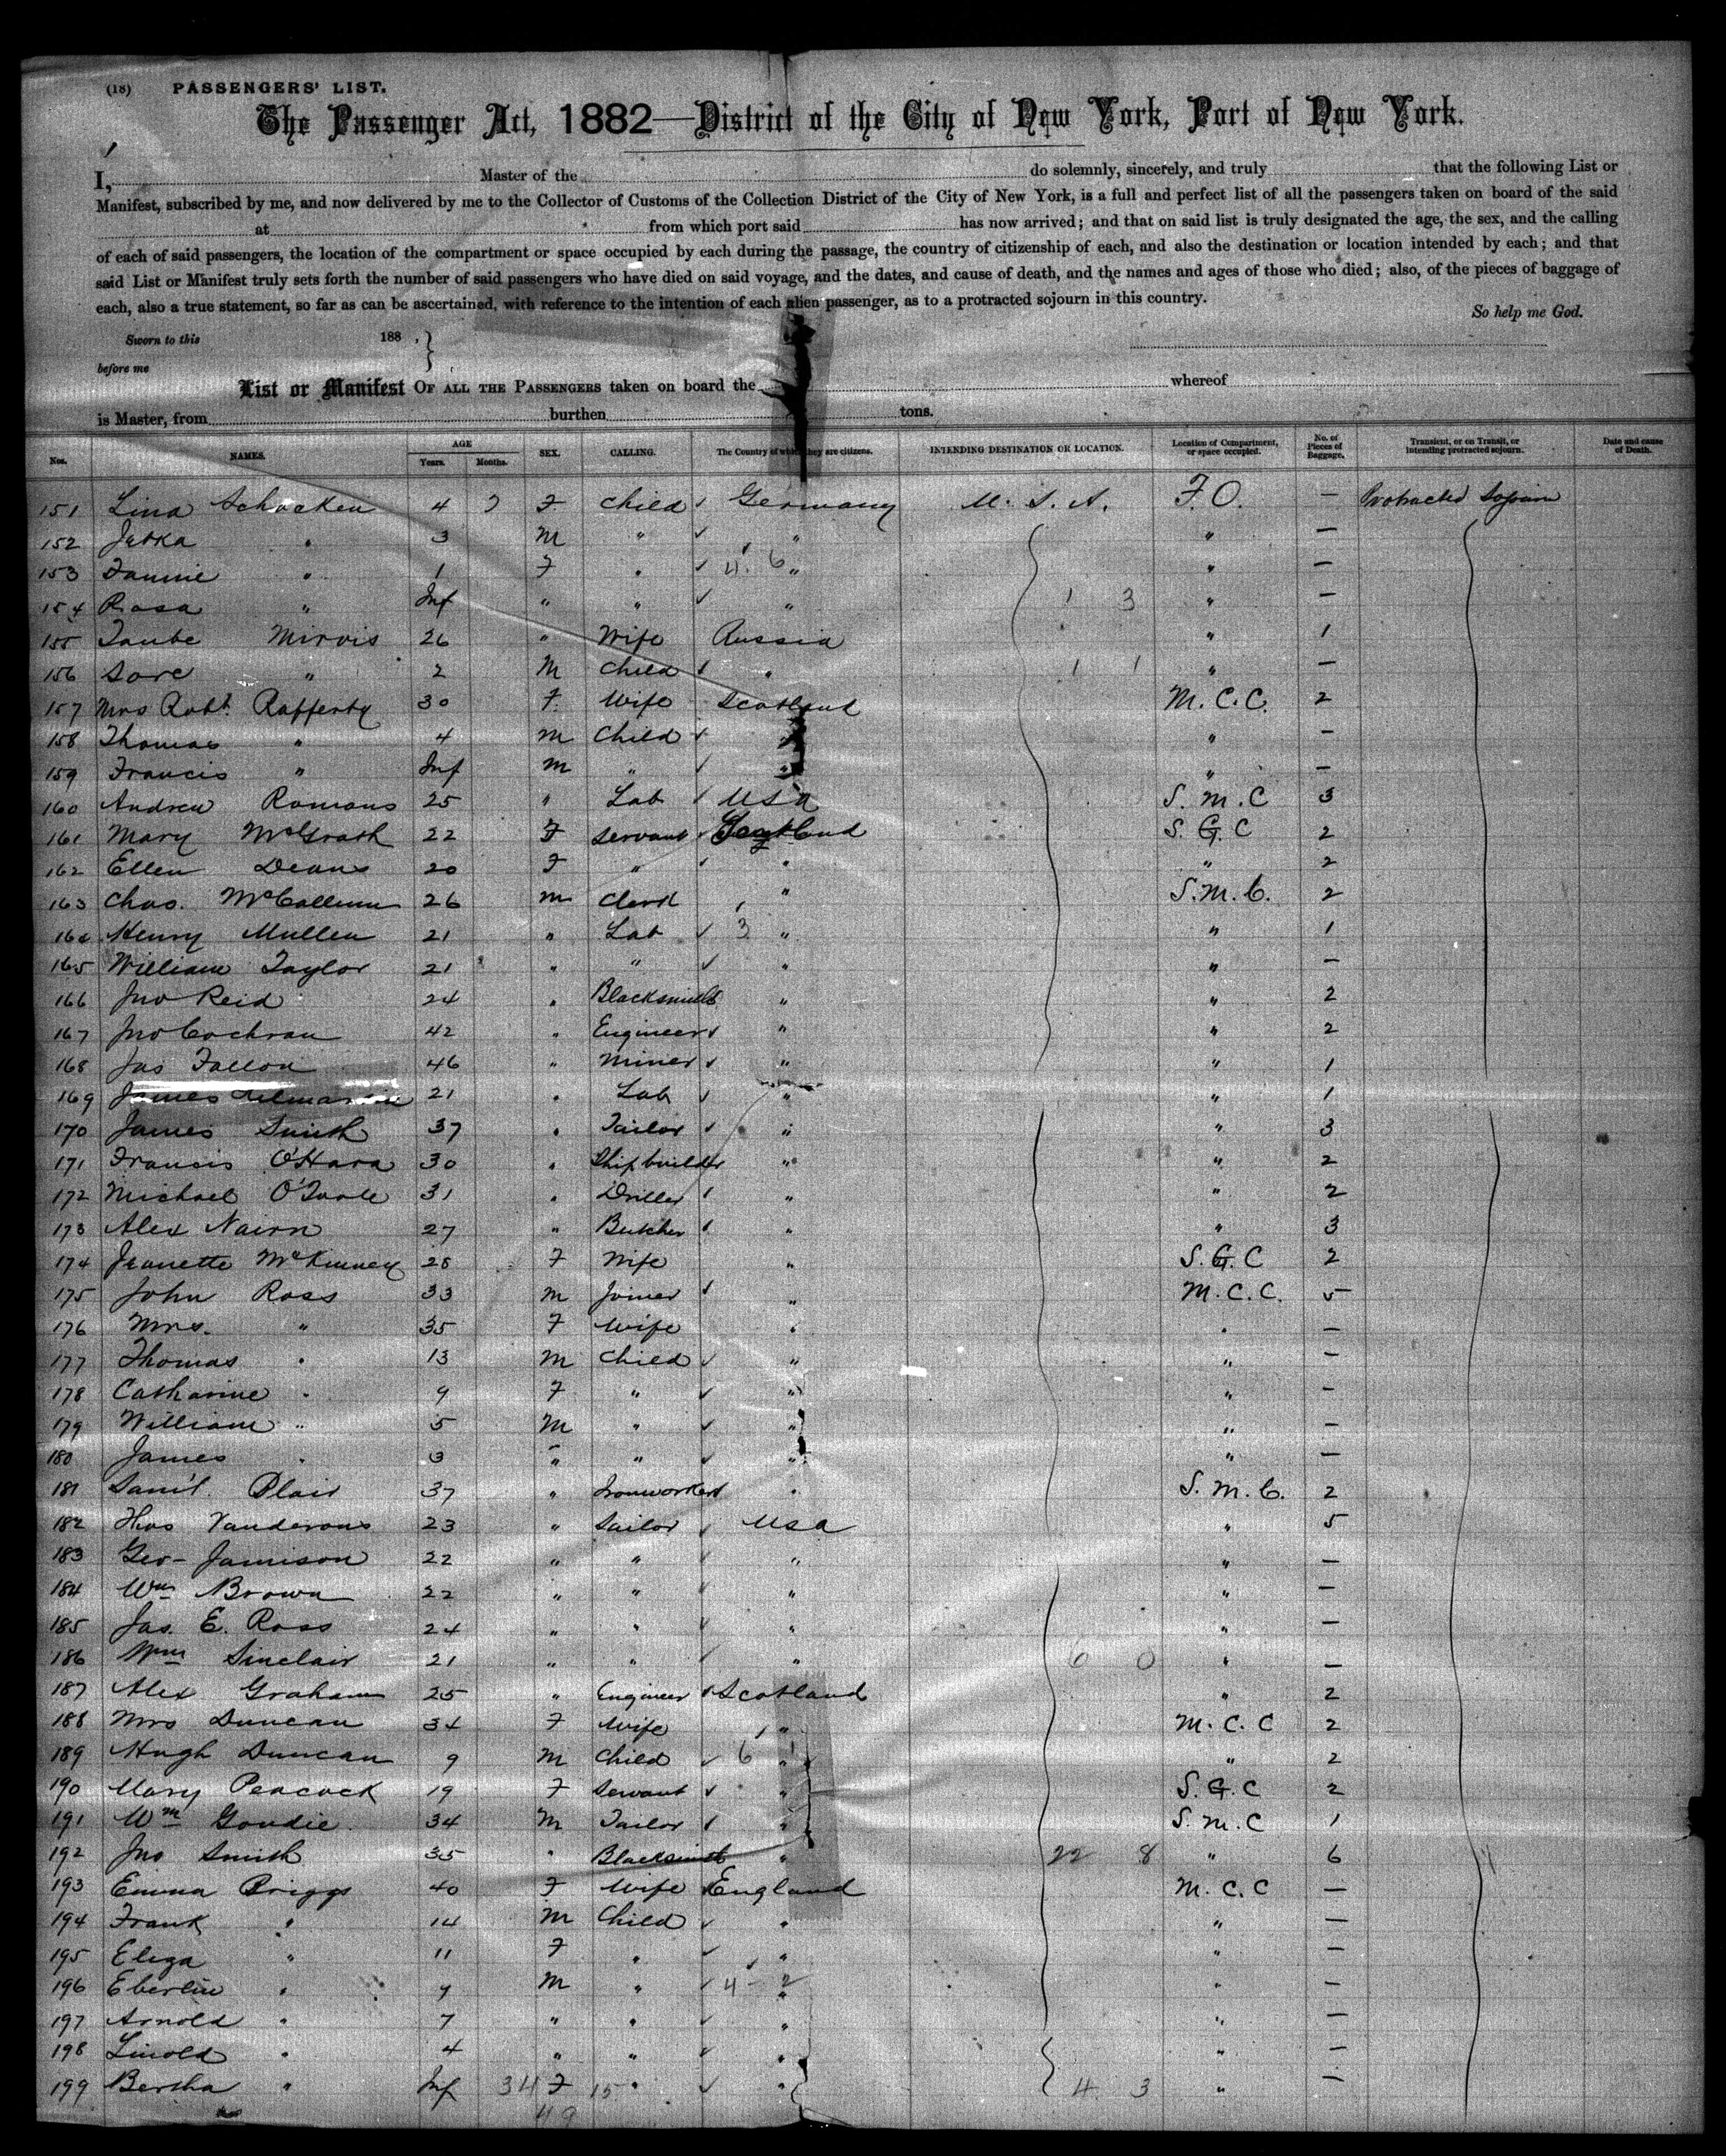 (18) PASSENGERS' LIST.
The Passenger Act, 1882—District of the City of New York, Port of New York.
I, Master of the do solemnly, sincerely, and truly that the following List or
Manifest, subscribed by me, and now delivered by me to the Collector of Customs of the Collection District of the City of New York, is a full and perfect list of all the passengers taken on board of the said
at from which port said has now arrived; and that on said list is truly designated the age, the sex, and the calling
of each of said passengers, the location of the compartment or space occupied by each during the passage, the country of citizenship of each, and also the destination or location intended by each; and that
said List or Manifest truly sets forth the number of said passengers who have died on said voyage, and the dates, and cause of death, and the names and ages of those who died; also, of the pieces of baggage of
each, also a true statement, so far as can be ascertained, with reference to the intention of each alien passenger, as to a protracted sojourn in this country.
So help me God.
Sworn to this 188 ,
before me
List or Manifest OF ALL THE PASSENGERS taken on board the whereof
is Master, from burthen tons.
Nos. NAMES. AGE Years. Months. SEX. CALLING. The Country of which they are citizens. INTENDING DESTINATION OR LOCATION. Location of Compartment, or space occupied. No. of Pieces of Baggage. Transient, or on Transit, or intending protracted sojourn. Date and cause of Death.
151 Lina Schocken 4 F Child Germany U. S. A. F.O. — Protracted Sojourn
152 Jetka " 3 M " " " —
153 Fannie " 1 F " 4. 6 " " —
154 Rosa " Inf " " " 1 3 " —
155 Taube Mirvis 26 " Wife Russia " 1
156 Sore " 2 M Child " 1 1 " —
157 Mrs Robt. Rafferty 30 F. Wife Scotland M. C. C. 2
158 Thomas " 4 M Child " " —
159 Francis " Inf M " " " —
160 Andrew Romans 25 " Lab USA S. M. C 3
161 Mary McGrath 22 F Servant Scotland S. G. C 2
162 Ellen Deans 20 F " " " 2
163 Chas. McCallum 26 M Clerk " S. M. C. 2
164 Henry Mullen 21 " Lab 3 " " 1
165 William Taylor 21 " " " " —
166 Jno Reid 24 " Blacksmith " " 2
167 Jno Cochran 42 " Engineer " " 2
168 Jas Fallon 46 " Miner " " 1
169 James 21 " Lab " " 1
170 James Smith 37 " Tailor " " 3
171 Francis O'Hara 30 " Shipbuilder " " 2
172 Michael O'Toole 31 " Driller " " 2
173 Alex Nairn 27 " Butcher " " 3
174 Jeanette McKinney 28 F Wife " S. G. C 2
175 John Ross 33 M Joiner " M. C. C. 5
176 Mrs. " 35 F Wife " " —
177 Thomas " 13 M Child " " —
178 Catharine " 9 F " " " —
179 William " 5 M " " " —
180 James " 3 " " " " —
181 Saml. Blair 37 " Ironworker " S. M. C. 2
182 Thos Vanderous 23 " Sailor USA " 5
183 Geo- Jamison 22 " " " " —
184 Wm Brown 22 " " " " —
185 Jas. E. Ross 24 " " " " —
186 Wm Sinclair 21 " " " 6 0 " —
187 Alex Graham 25 " Engineer Scotland " 2
188 Mrs Duncan 34 F Wife " M. C. C 2
189 Hugh Duncan 9 M Child 6 " " 2
190 Mary Peacock 19 F Servant " S. G. C 2
191 Wm Goudie 34 M Tailor " S. M. C 1
192 Jno Smith 35 " Blacksmith " 22 8 " 6
193 Emma Briggs 40 F Wife England M. C. C —
194 Frank " 14 M Child " " —
195 Eliza " 11 F " " " —
196 Eberlin " 9 M " 4 - 2 " " —
197 Arnold " 7 " " " " —
198 Linold " 4 " " " " —
199 Bertha " Inf 34 F 15 " " 4 3 " —
49